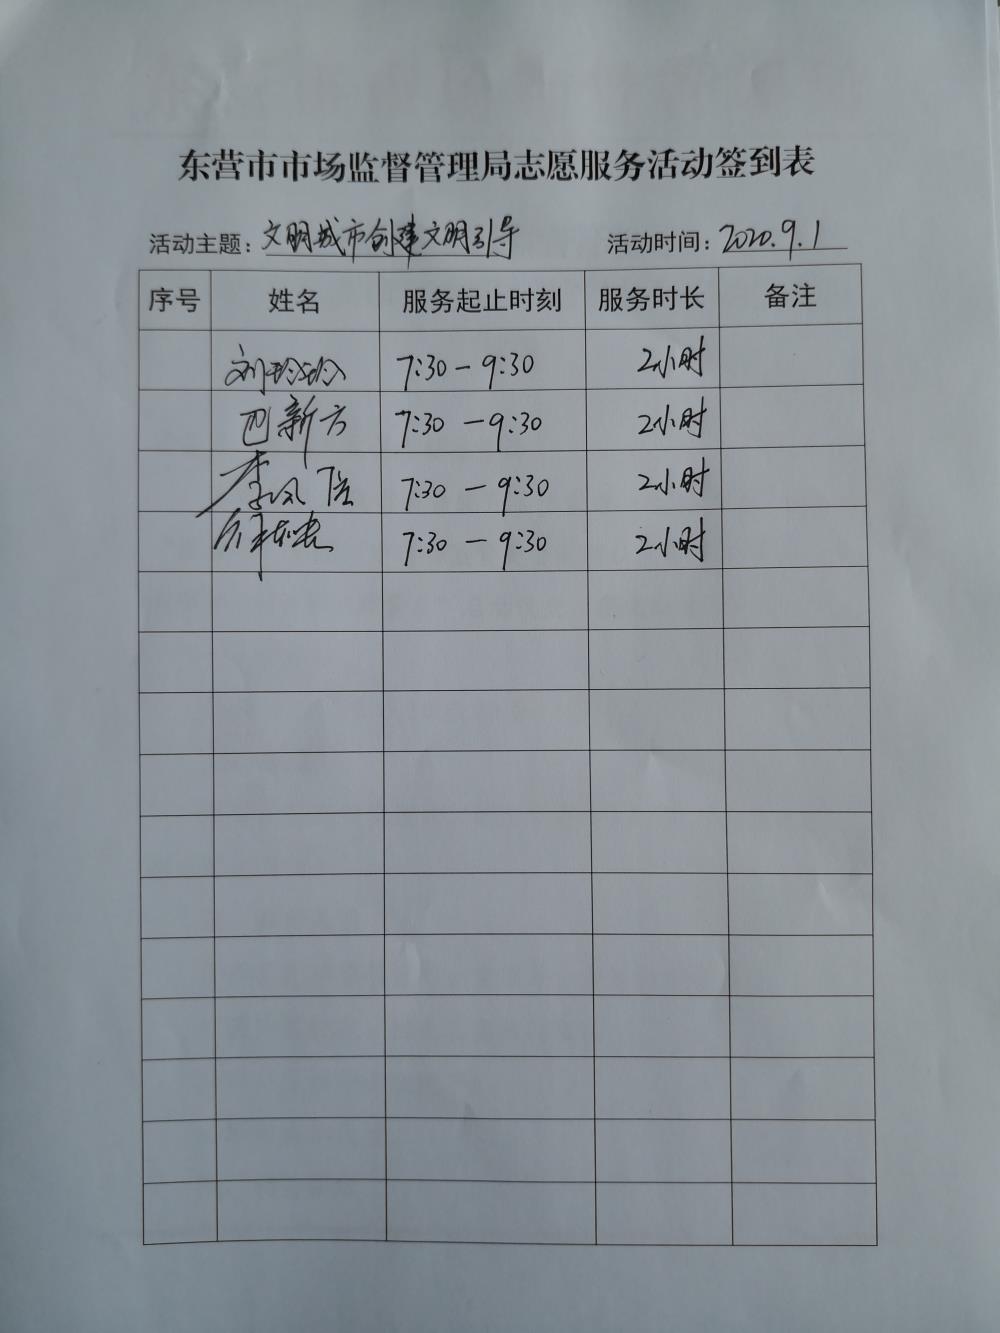 东营市市场监督管理局志愿服务活动签到表
活动主题：文明城市创建文明引导 活动时间：2020.9.1
序号 姓名 服务起止时刻 服务时长 备注
刘玲玲 7:30－9:30 2小时
巴新方 7:30－9:30 2小时
李风 7:30－9:30 2小时
7:30－9:30 2小时